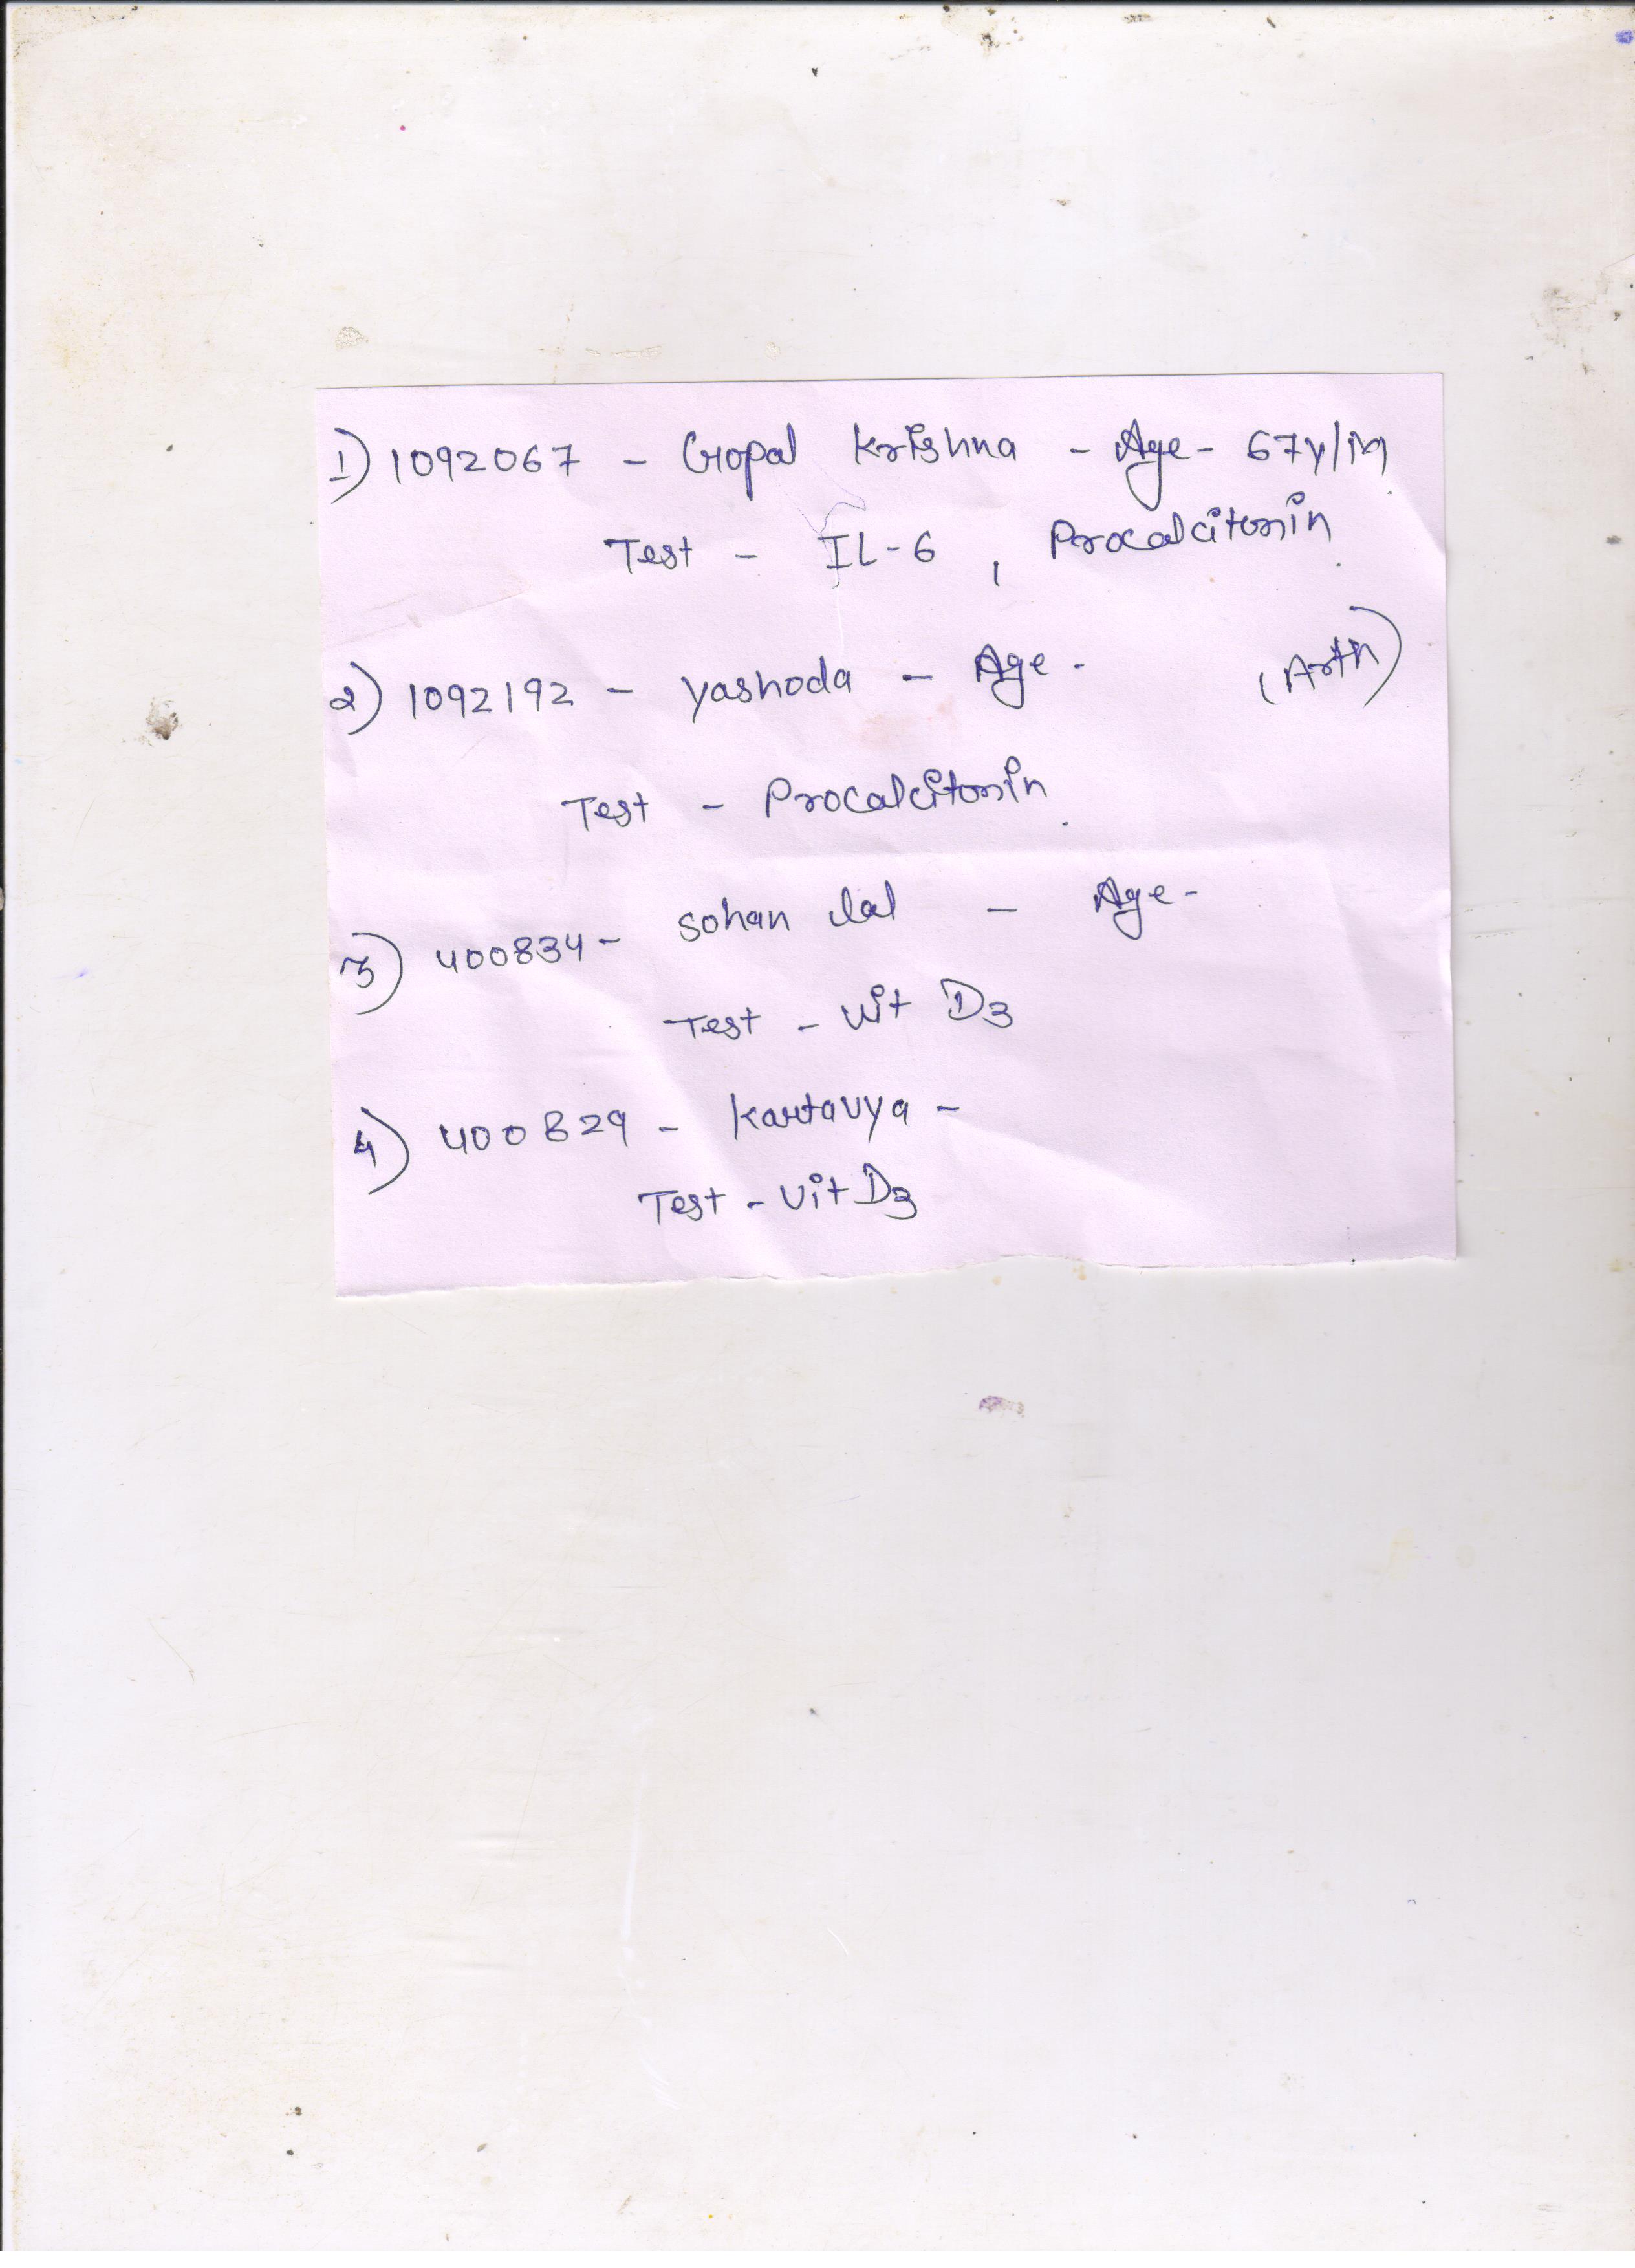 1) 1092067 - Gopal Krishna - Age - 67y/M
Test - IL-6 , Procalcitonin
2) 1092192 - Yashoda - Age - (Arth)
Test - Procalcitonin
3) 400834 - Sohan Lal - Age -
Test - Vit D3
4) 400829 - Kartavya -
Test - Vit D3